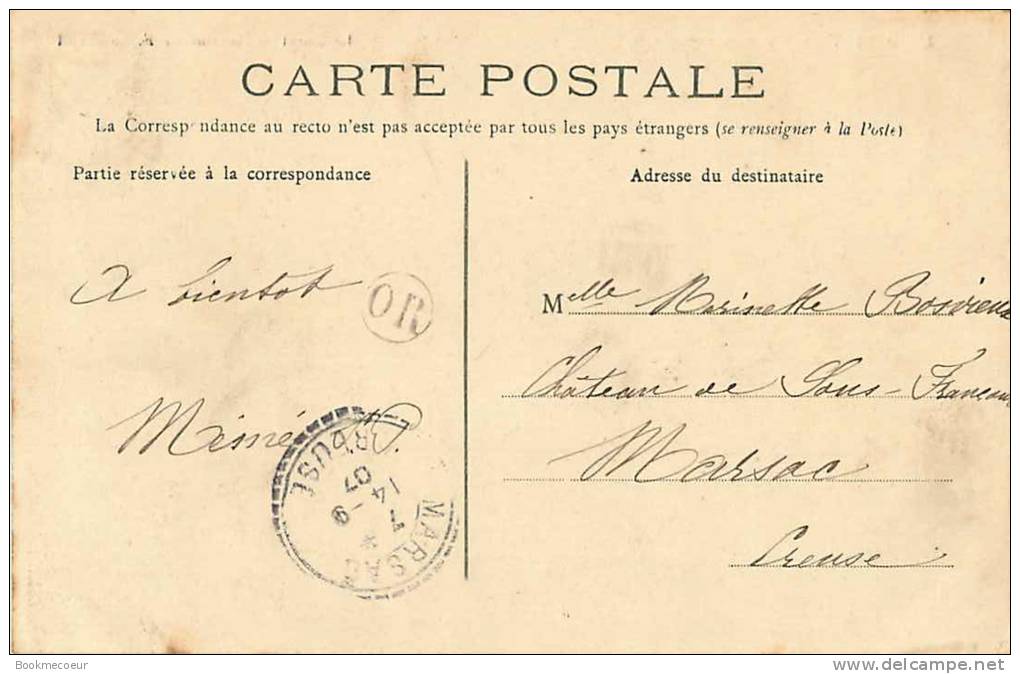 CARTE POSTALE
La Correspondance au recto n'est pas acceptée par tous les pays étrangers (se renseigner à la Poste)
Partie réservée à la correspondance
Adresse du destinataire
A bientot
OR
Mimé
MARSAC
CREUSE
7
14 -9
07
Melle Marinette
Château de Sous-
Marsac
Creuse
Bookmecoeur
www.delcampe.net